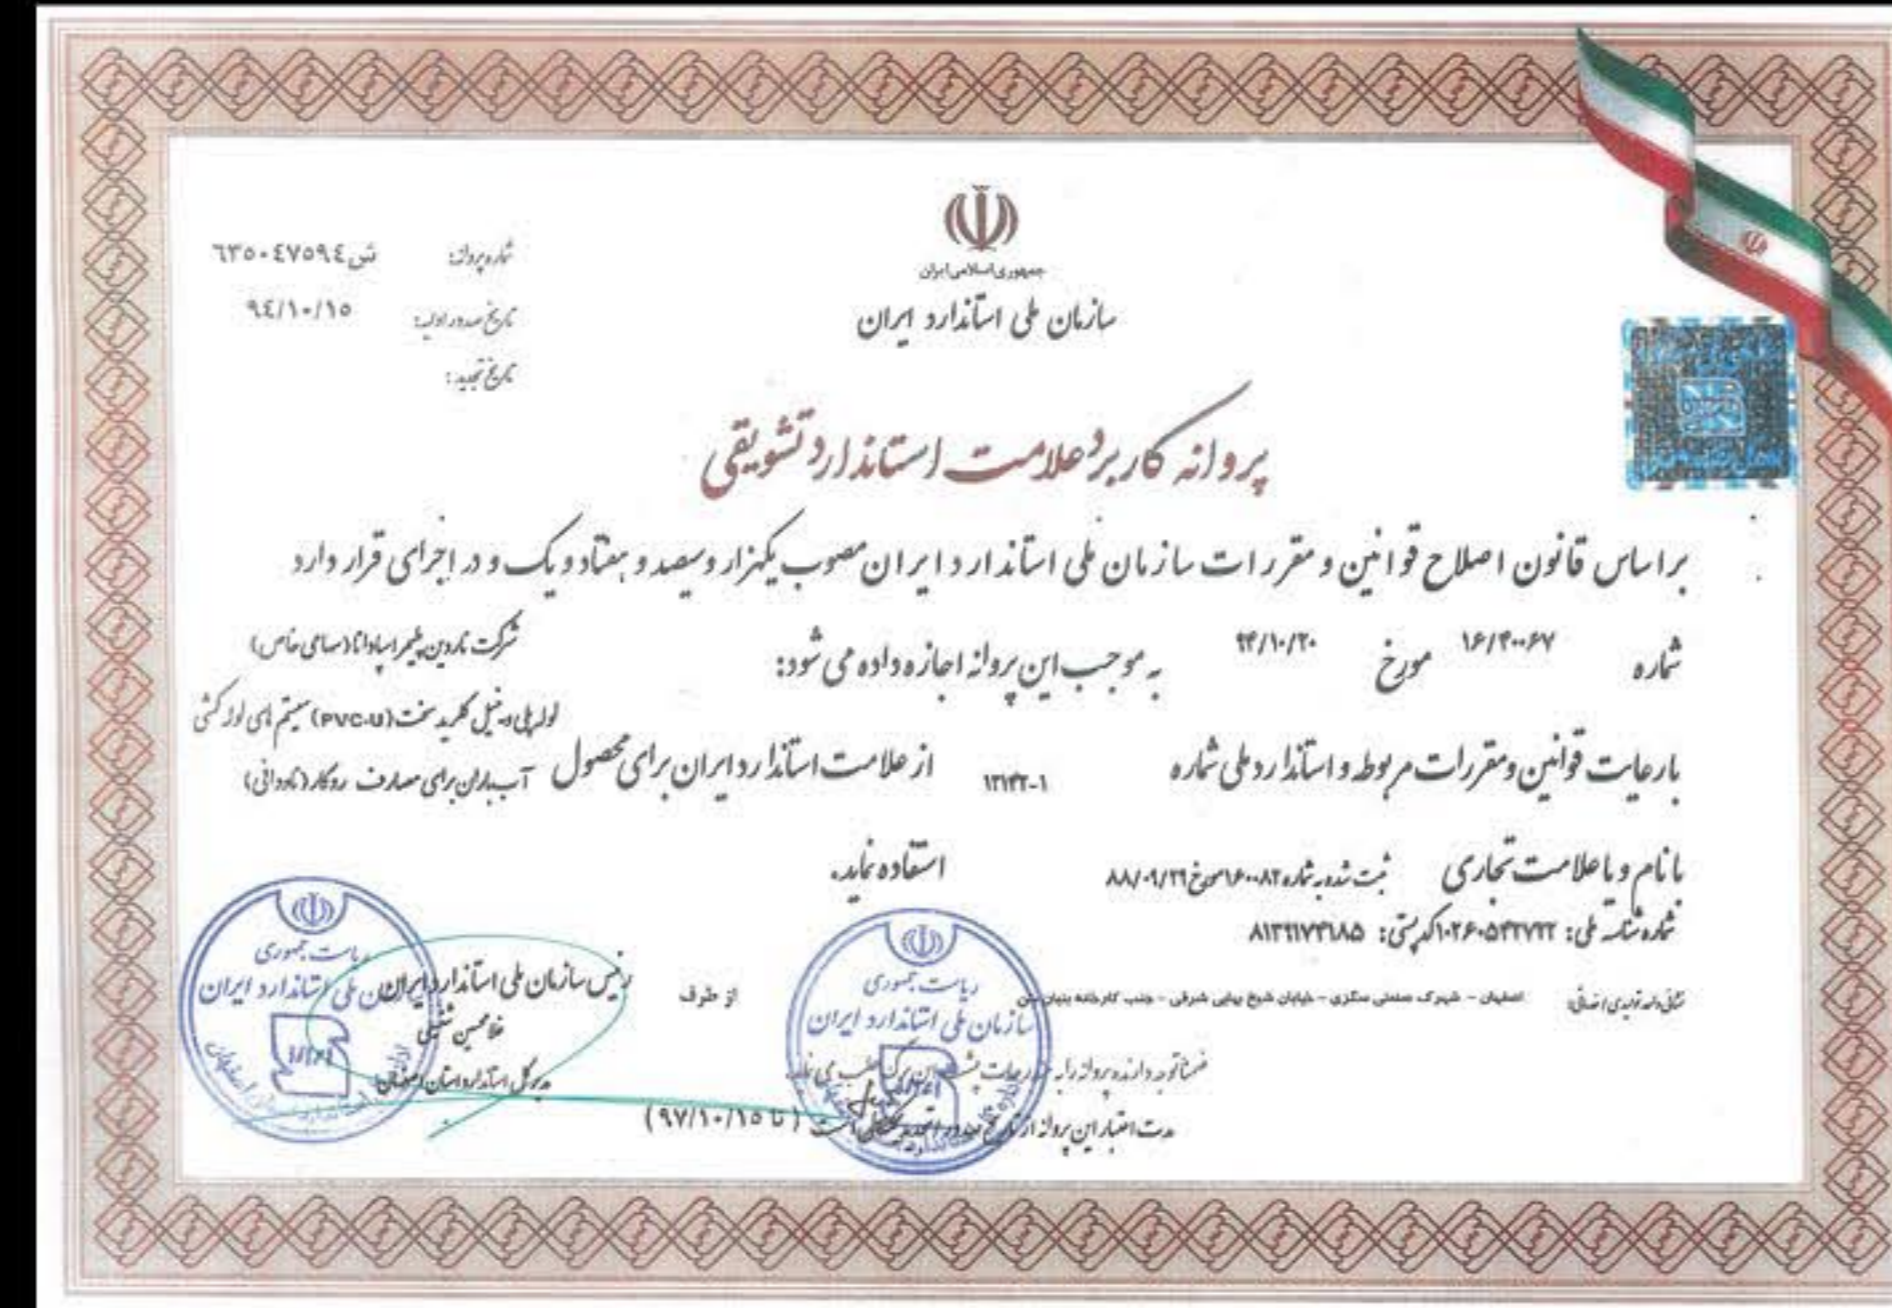 جمهوری اسلامی ایران
سازمان ملی استاندارد ایران
شماره پروانه: ش ٦٣٥٠٤٧٥٩٤
تاریخ صدور اولیه: ٩٤/١٠/١٥
تاریخ تجدید:
پروانه کاربرد علامت استاندارد تشویقی
بر اساس قانون اصلاح قوانین و مقررات سازمان ملی استاندارد ایران مصوب یکهزار و سیصد و هفتاد و یک و در اجرای قرار داد
شماره ۱۶/۴۰۰۶۷ مورخ ۹۴/۱۰/۲۰ به موجب این پروانه اجازه داده می شود: شرکت ناردین پلیمر اسپادانا (سهامی خاص)
با رعایت قوانین و مقررات مربوطه و استاندارد ملی شماره ۱۳۱۴۲-۱ از علامت استاندارد ایران برای محصول لوله پلی وینیل کلرید سخت (PVC-U) سیستم های لوله کشی
آب باران برای مصارف روکار (ناودانی)
با نام و یا علامت تجاری ثبت شده به شماره ۱۶۰۰۸۲ مورخ ۸۸/۰۹/۲۹ استفاده نماید.
شماره شناسه ملی: کد پستی:
نشانی واحد تولیدی / خدماتی: اصفهان - شهرک صنعتی سگزی - خیابان شیخ بهایی شرقی - جنب کارخانه بنیان بتن
ضمناً توجه دارنده پروانه را به مندرجات پشت این برگ جلب می نماید.
مدت اعتبار این پروانه از تاریخ صدور است ( تا ٩٧/١٠/١٥ )
از طرف
رئیس سازمان ملی استاندارد ایران
غلامحسین شفیعی
مدیر کل استاندارد استان اصفهان
ریاست جمهوری
سازمان ملی استاندارد ایران
ریاست جمهوری
سازمان ملی استاندارد ایران